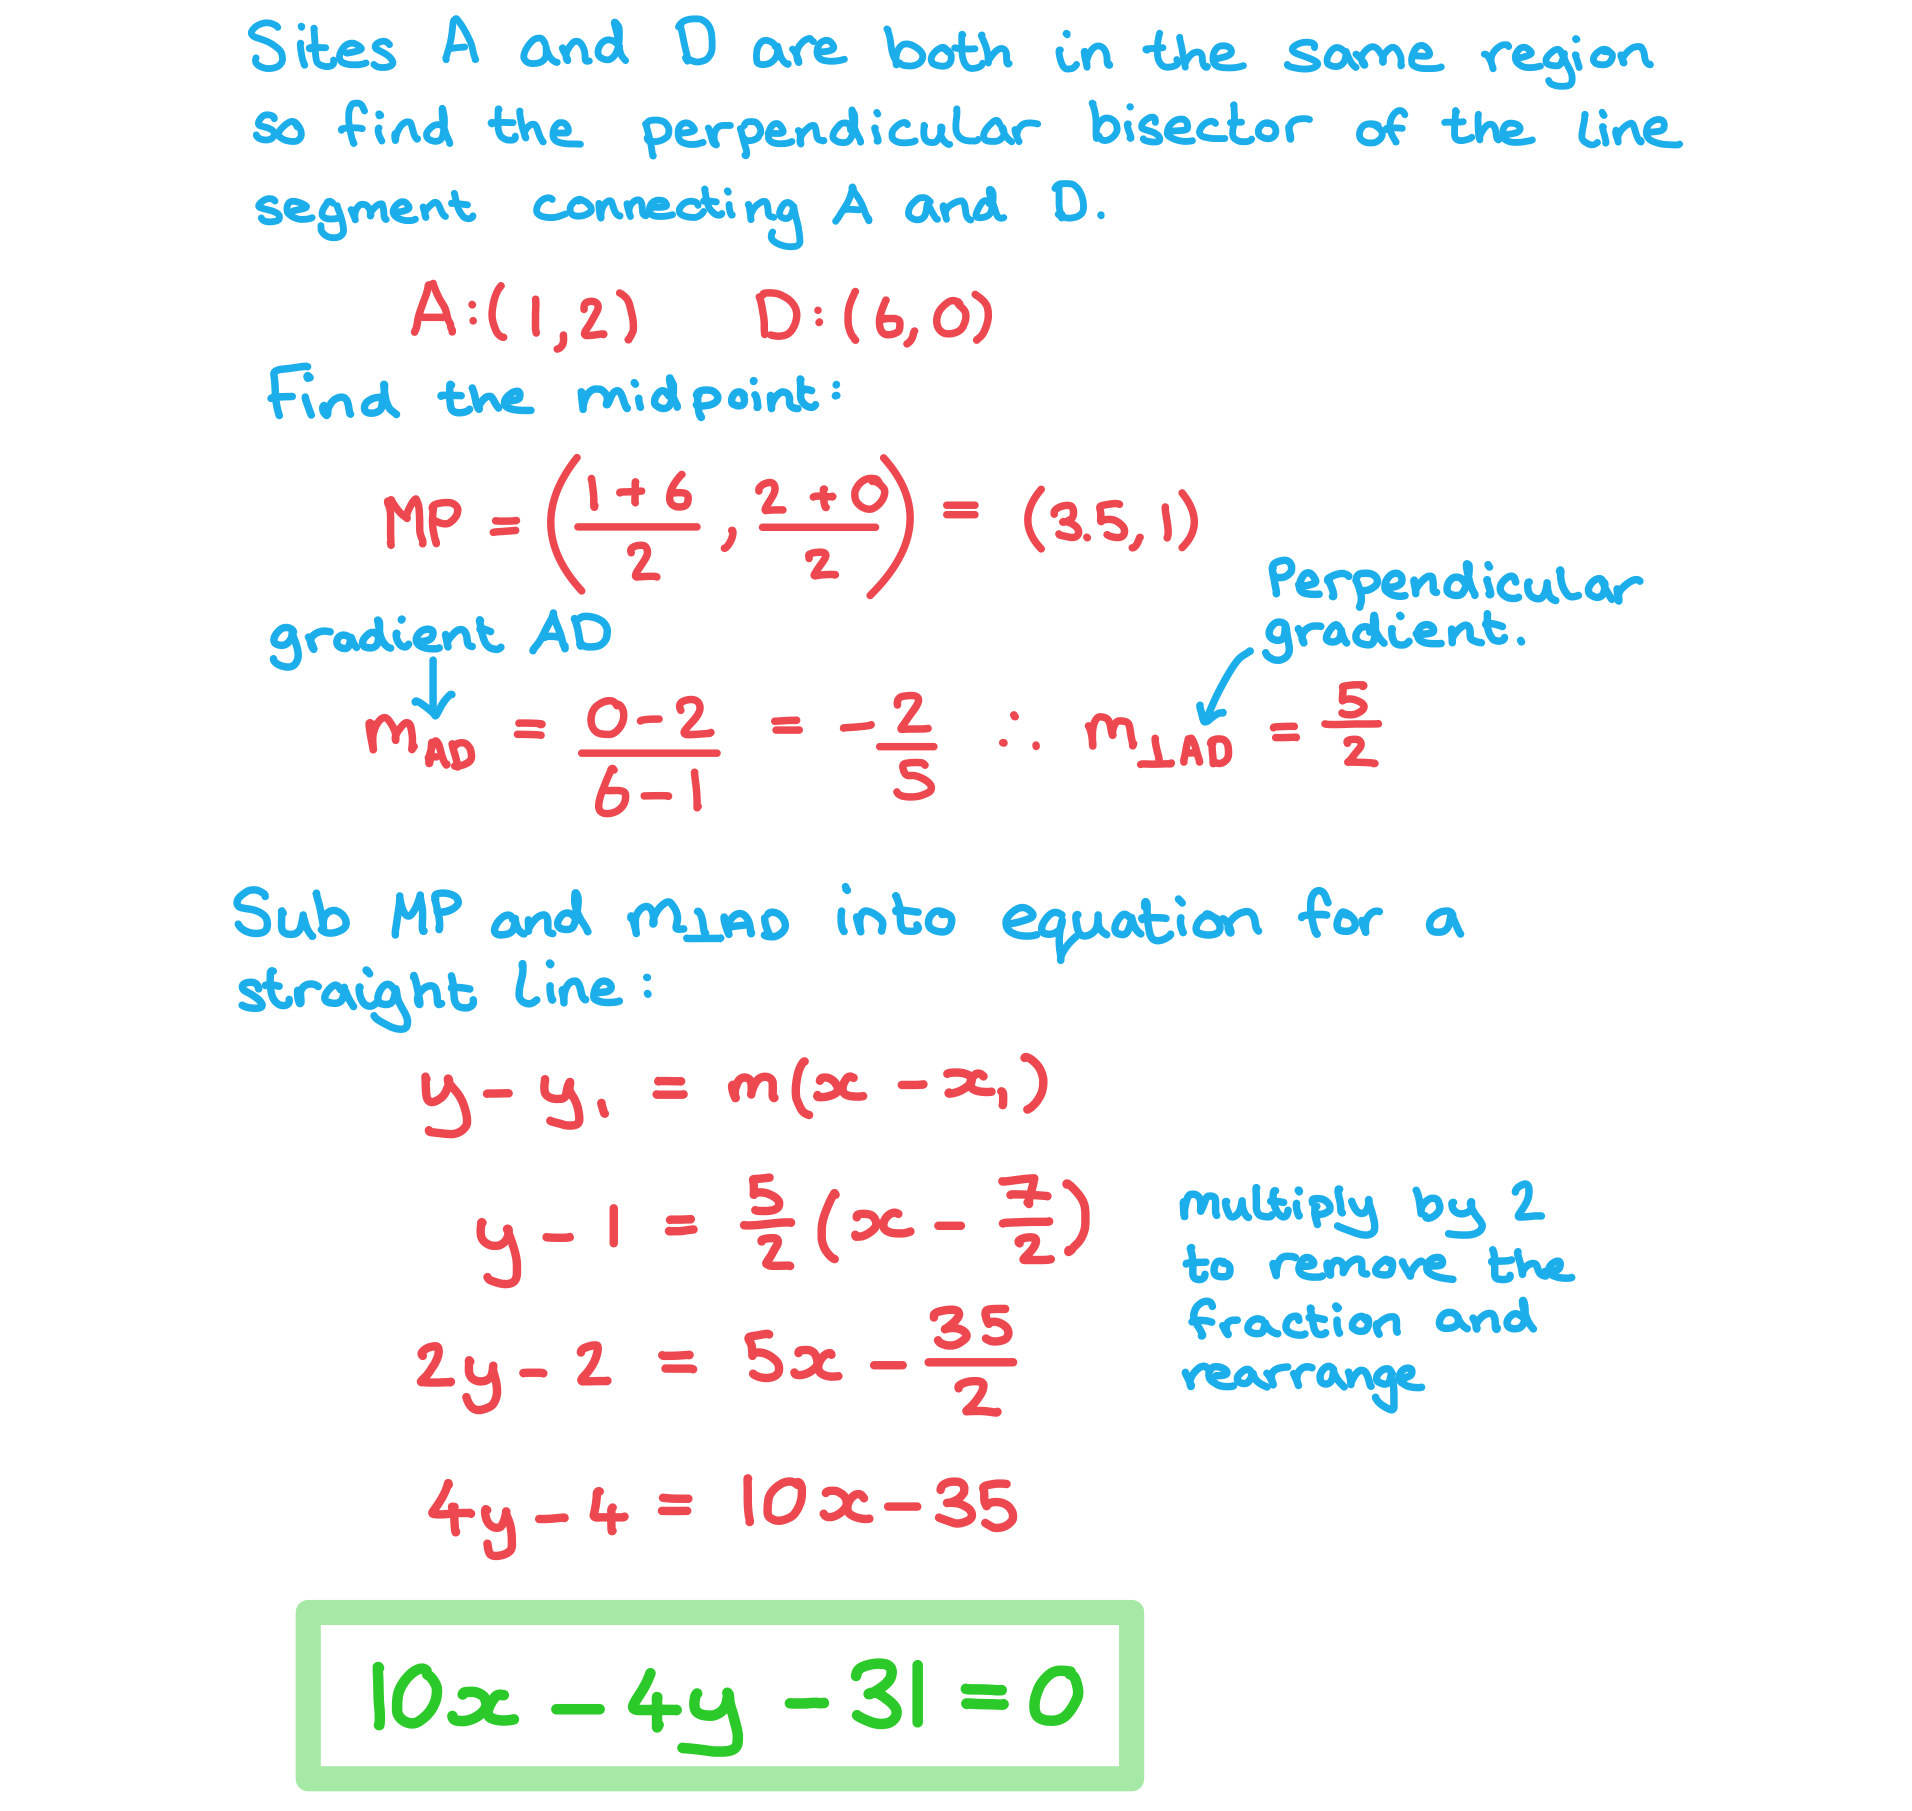 Sites A and D are both in the same region
so find the perpendicular bisector of the line
segment connecting A and D.
A:(1,2) D:(6,0)
Find the midpoint:
MP = ((1+6)/2, (2+0)/2) = (3.5,1)
gradient AD
Perpendicular
gradient.
m_AD = (0-2)/(6-1) = -2/5 ∴ m_⊥AD = 5/2
Sub MP and m⊥AD into equation for a
straight line:
y-y₁ = m(x-x₁)
y-1 = 5/2(x-7/2)
multiply by 2
to remove the
fraction and
rearrange
2y-2 = 5x-35/2
4y-4 = 10x-35
10x-4y-31=0